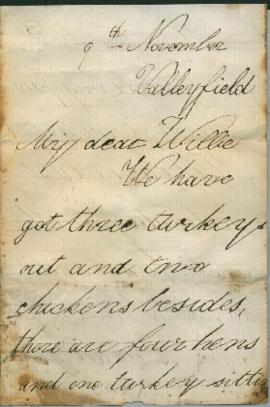 9th November
Valleyfield
My dear Willie
We have
got three turkeys
out and two
chickens besides,
there are four hens
and one turkey sitting